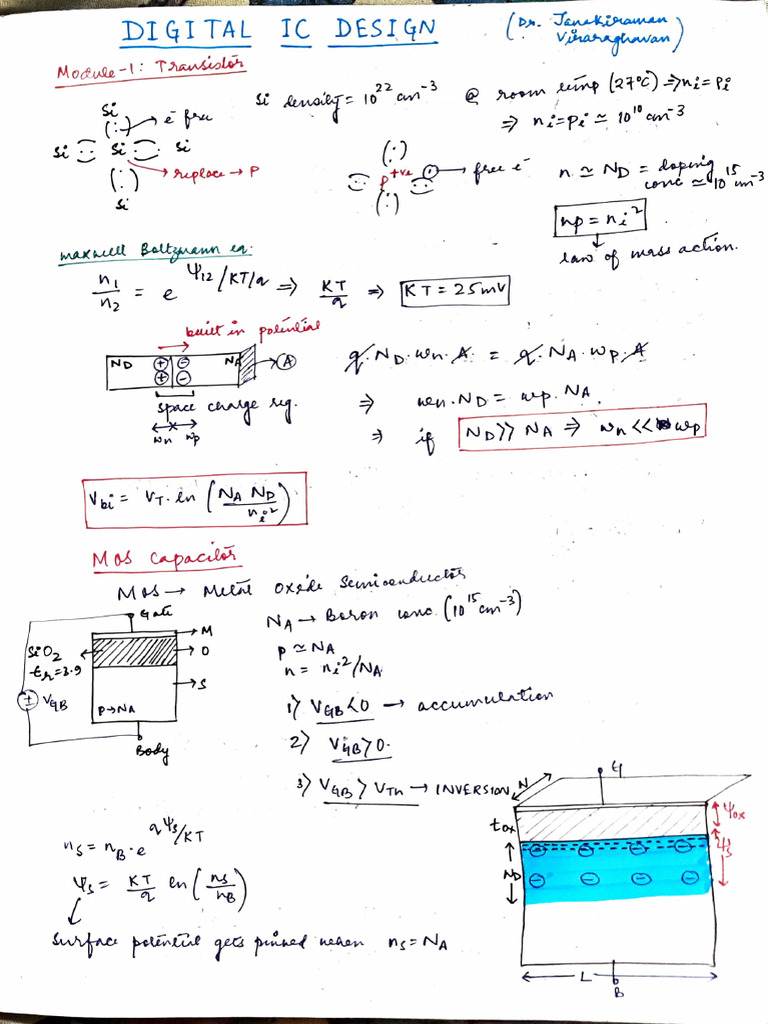 DIGITAL IC DESIGN
(Dr. Janakiraman
Viraraghavan)
Module-1: Transistor
Si density = 10²² cm⁻³ @ room temp (27°C) ⇒ ni = pi
⇒ ni = pi ≃ 10¹⁰ cm⁻³
Si
(:) → e⁻ free
Si Si Si
(:) → replace → P
Si
(:)
P +ve → free e⁻
(:)
n ≃ ND = doping
conc ≃ 10¹⁵ cm⁻³
np = ni²
law of mass action.
Maxwell Boltzmann eq:
n1/n2 = e^Ψ12/KT/q ⇒ KT/q ⇒ KT = 25mV
built in potential
ND + - NA → A
+ -
space charge reg.
wn wp
q. ND. wn. A = q. NA. wp. A
⇒ wn. ND = wp. NA.
⇒ if ND >> NA ⇒ wn << wp
Vbi = VT. ln (NA ND/ni²)
MOS Capacitor
MOS → Metal Oxide Semiconductor
Gate
M
SiO2 O
εr = 3.9
S
VGB
P→NA
Body
NA → Boron conc. (10¹⁵ cm⁻³)
p ≃ NA
n = ni²/NA
1) VGB < 0 → accumulation
2) VGB > 0.
3) VGB > VTh → INVERSION
ns = nB. e^qΨs/KT
Ψs = KT/q ln (ns/nB)
Surface potential gets pinned when ns = NA
G
W
tox Ψox
Ψs
- - - -
- - - -
L
B